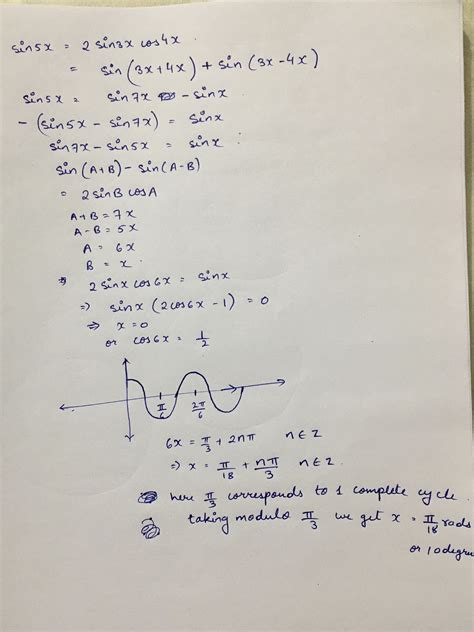 sin5x = 2 sin3x cos4x
= sin(3x+4x) + sin(3x-4x)
sin5x = sin7x - sinx
- (sin5x - sin7x) = sinx
sin7x - sin5x = sinx
sin(A+B) - sin(A-B)
= 2 sinB cosA
A+B = 7x
A-B = 5x
A = 6x
B = x
⇒ 2 sinx cos6x = sinx
⇒ sinx (2cos6x - 1) = 0
⇒ x = 0
or cos6x = 1/2
π/6 2π/6
6x = π/3 + 2nπ n∈Z
⇒ x = π/18 + nπ/3 n∈Z.
here π/3 corresponds to 1 complete cycle.
taking modulo π/3 we get x = π/18 rads
or 10 degree